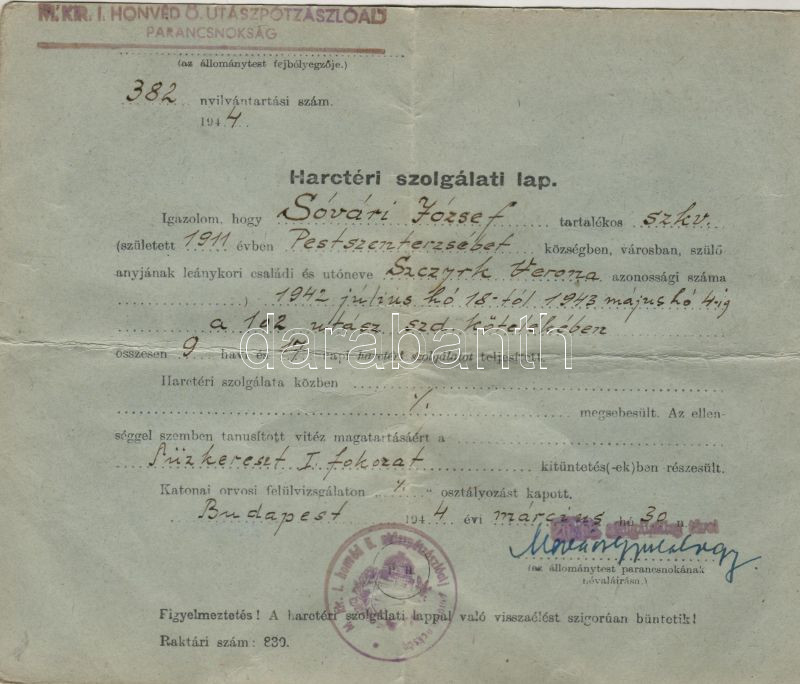 M. KIR. I. HONVÉD Ö. UTÁSZPÓTZÁSZLÓALJ
PARANCSNOKSÁG
(az állománytest fejbélyegzője.)
382 nyilvántartási szám.
1944.
Harctéri szolgálati lap.
Igazolom, hogy Sóvári József tartalékos szkv.
(született 1911 évben Pestszenterzsébet községben, városban, szülő
anyjának leánykori családi és utóneve Szczyrk Verona azonossági száma
) 1942 július hó 18-tól 1943 május hó 4-ig
a 102 utász szd. kötelékében
összesen 9 havi és 17 napi harctéri szolgálatot teljesített.
Harctéri szolgálata közben
·/. megsebesült. Az ellen-
séggel szemben tanusított vitéz magatartásáért a
Tűzkereszt I. fokozat kitüntetés(-ek)ben részesült.
Katonai orvosi felülvizsgálaton „·/.“ osztályozást kapott.
Budapest 1944 évi március hó 30 n
(az állománytest parancsnokának
névaláírása.)
P. H.
Figyelmeztetés! A harctéri szolgálati lappal való visszaélést szigorúan büntetik!
Raktári szám: 830.
darabanth